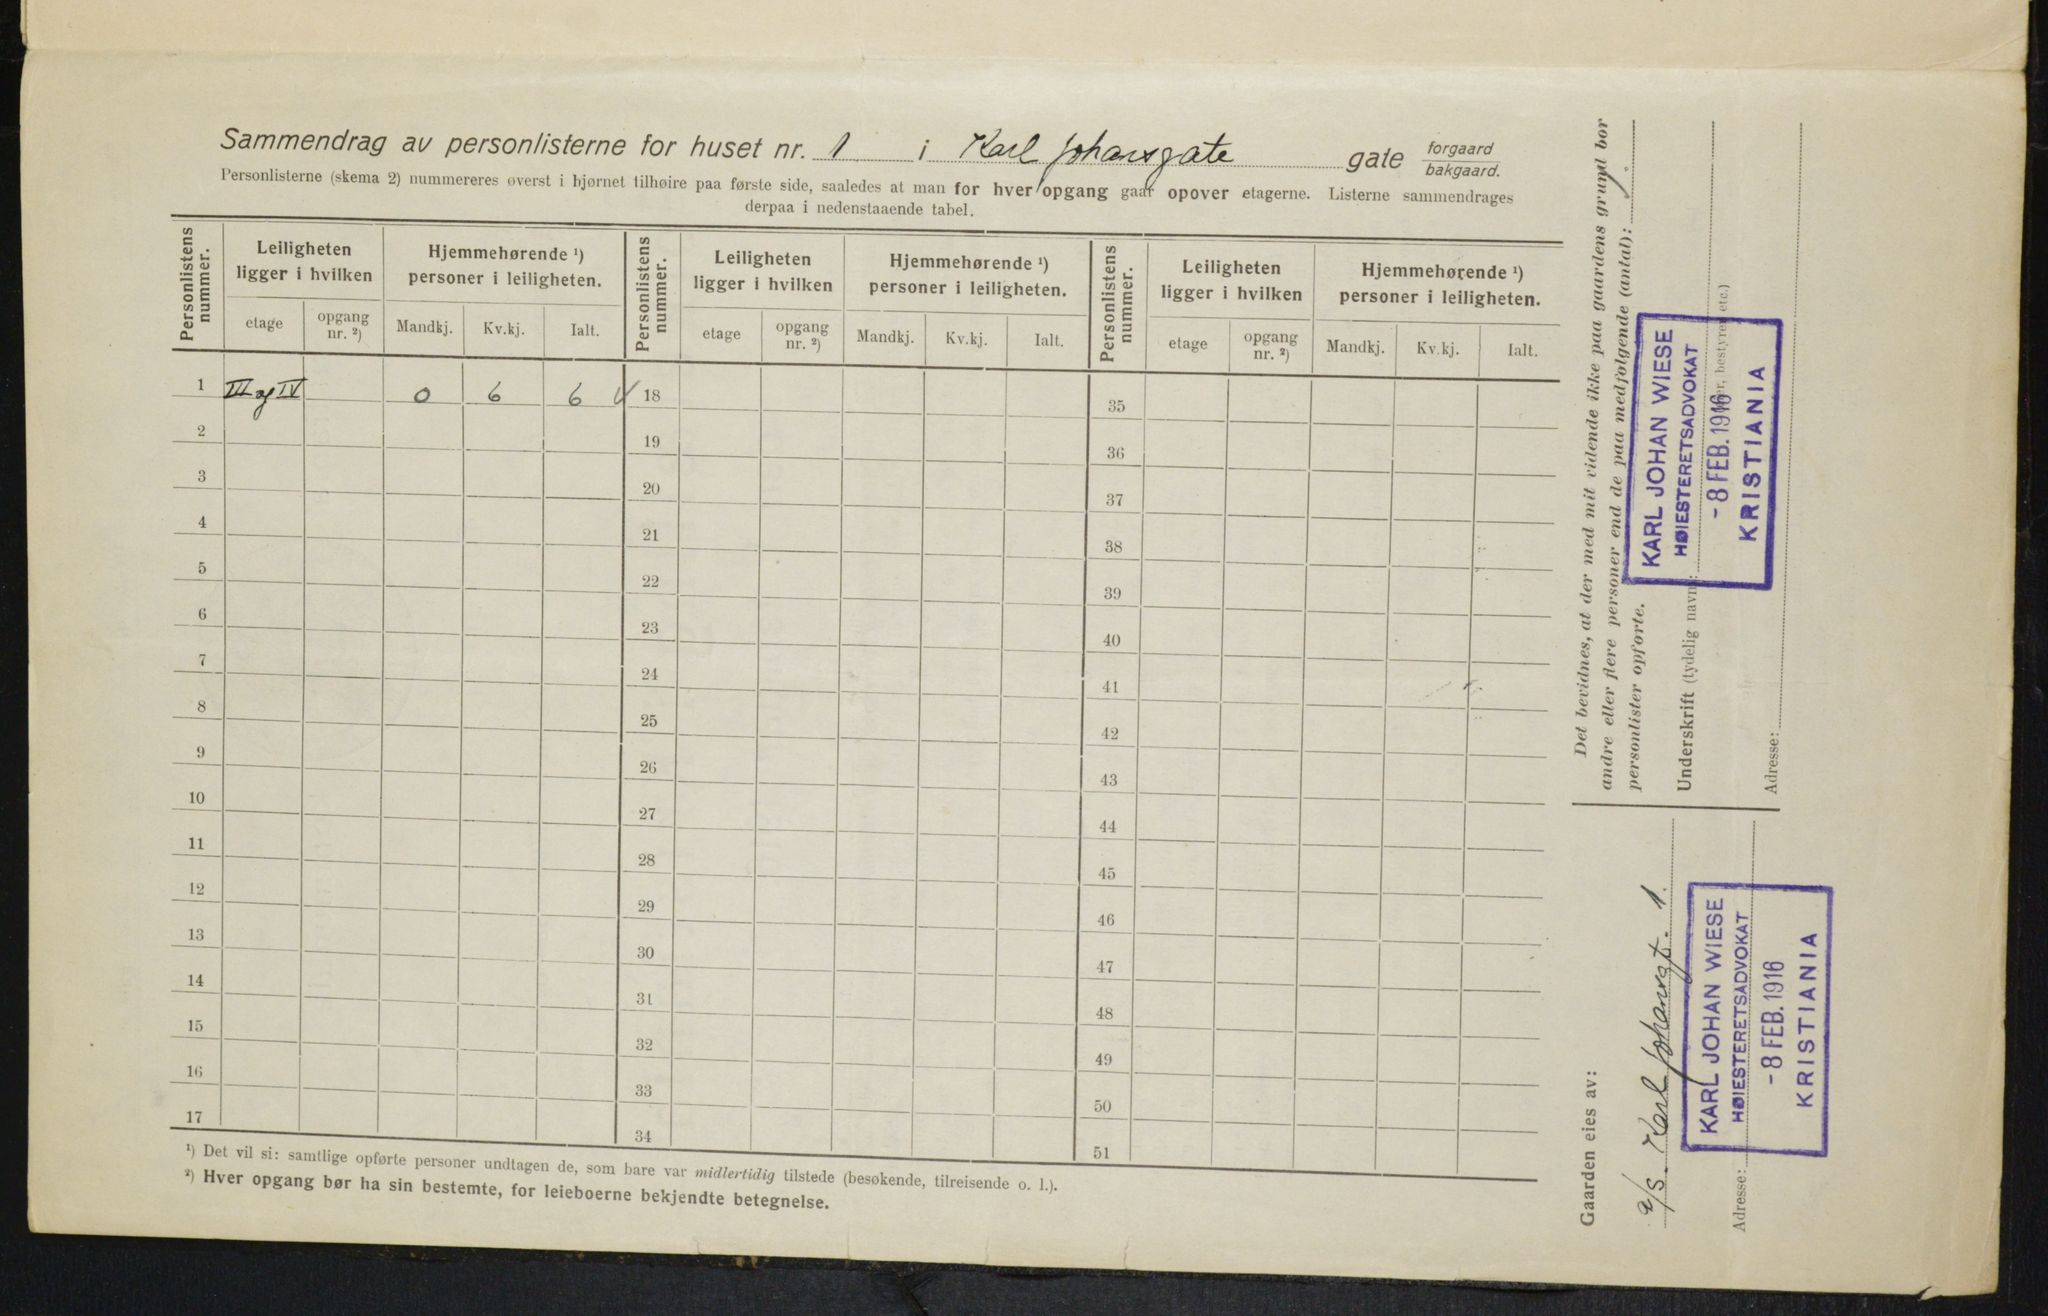 Sammendrag av personlisterne for huset nr. 1 i Karl Johansgate gate forgaard bakgaard.
Personlisterne (skema 2) nummereres øverst i hjørnet tilhøire paa første side, saaledes at man for hver opgang gaar opover etagerne. Listerne sammendrages
derpaa i nedenstaaende tabel.
Personlistens nummer. Leiligheten ligger i hvilken Hjemmehørende ¹) personer i leiligheten. Personlistens nummer. Leiligheten ligger i hvilken Hjemmehørende ¹) personer i leiligheten. Personlistens nummer. Leiligheten ligger i hvilken Hjemmehørende ¹) personer i leiligheten.
etage opgang nr. ²) Mandkj. Kv.kj. Ialt. etage opgang nr. ²) Mandkj. Kv.kj. Ialt. etage opgang nr. ²) Mandkj. Kv.kj. Ialt.
1 III og IV 0 6 6 18 35
2 19 36
3 20 37
4 21 38
5 22 39
6 23 40
7 24 41
8 25 42
9 26 43
10 27 44
11 28 45
12 29 46
13 30 47
14 31 48
15 32 49
16 33 50
17 34 51
¹) Det vil si: samtlige opførte personer undtagen de, som bare var midlertidig tilstede (besøkende, tilreisende o. l.).
²) Hver opgang bør ha sin bestemte, for leieboerne bekjendte betegnelse.
Det bevidnes, at der med mit vidende ikke paa gaardens grund bor
andre eller flere personer end de paa medfølgende (antal): 1.
personlister opførte.
Underskrift (tydelig navn):
bestyrer etc.)
KARL JOHAN WIESE
HØIESTERETSADVOKAT
- 8 FEB. 1916
KRISTIANIA
Adresse:
Gaarden eies av:
a/s. Karl Johansgt. 1.
Adresse:
KARL JOHAN WIESE
HØIESTERETSADVOKAT
- 8 FEB. 1916
KRISTIANIA